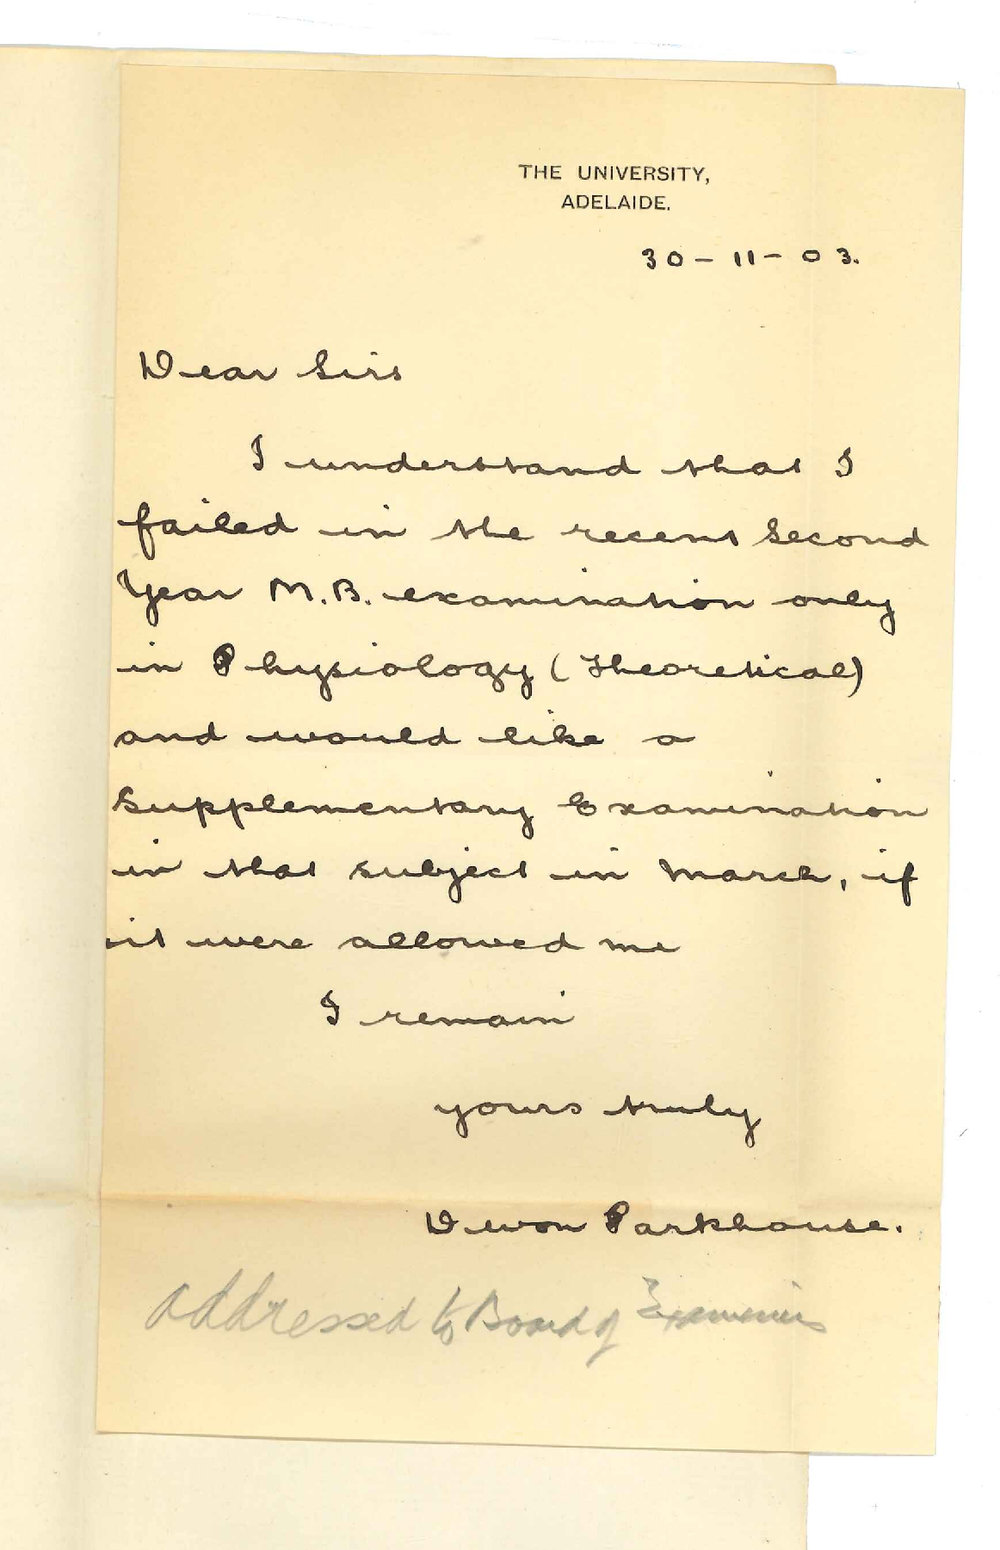 THE UNIVERSITY,
ADELAIDE.
30-11-03.
Dear Sirs
I understand that I
failed in the recent Second
Year M.B. examination only
in Physiology (Theoretical)
and would like a
Supplementary Examination
in that subject in March, if
it were allowed me
I remain
yours truly
Devon Parkhouse.
addressed to Board of Examiners